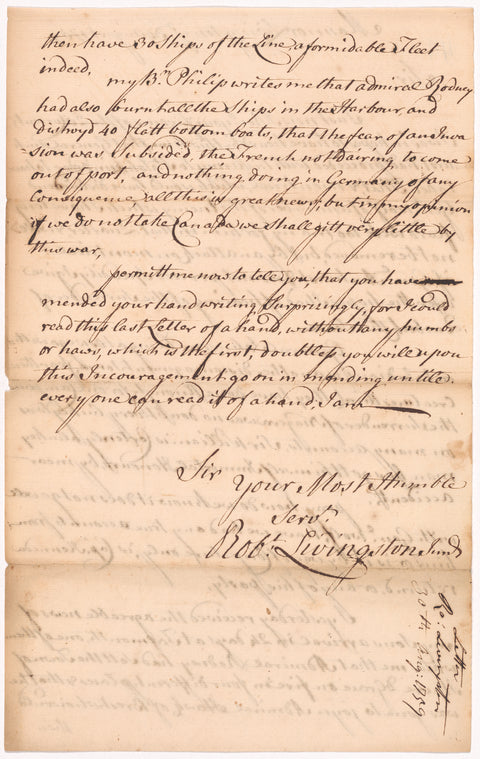 then have 30 Ships of the Line, a formidable Fleet
indeed,
my Br. Philip writes me that admiral Rodney
had also burn'd all the Ships in the Harbour, and
distroyd 40 flatt bottom boats, that the fear of an Inva
=sion was Subsided, the French not dairing to come
out of port, and nothing doing in Germany of any
Consiquence, all this is great news, but in my opinion
if we do not take Canada we shall gitt very little by
this war,
permitt me now to tell you that you have
mended your hand writing Surprizingly, for I could
read this last Letter of a hand, without any humbs
or haws, which is the first, doubtless you will upon
this Incouragement go on in mending untile
every one can read it of a hand, I am
Sir
Your Most Humble
Servt.
Robt. Livingston Junr
Letter
Ro: Livingston
30th Aug: 1759